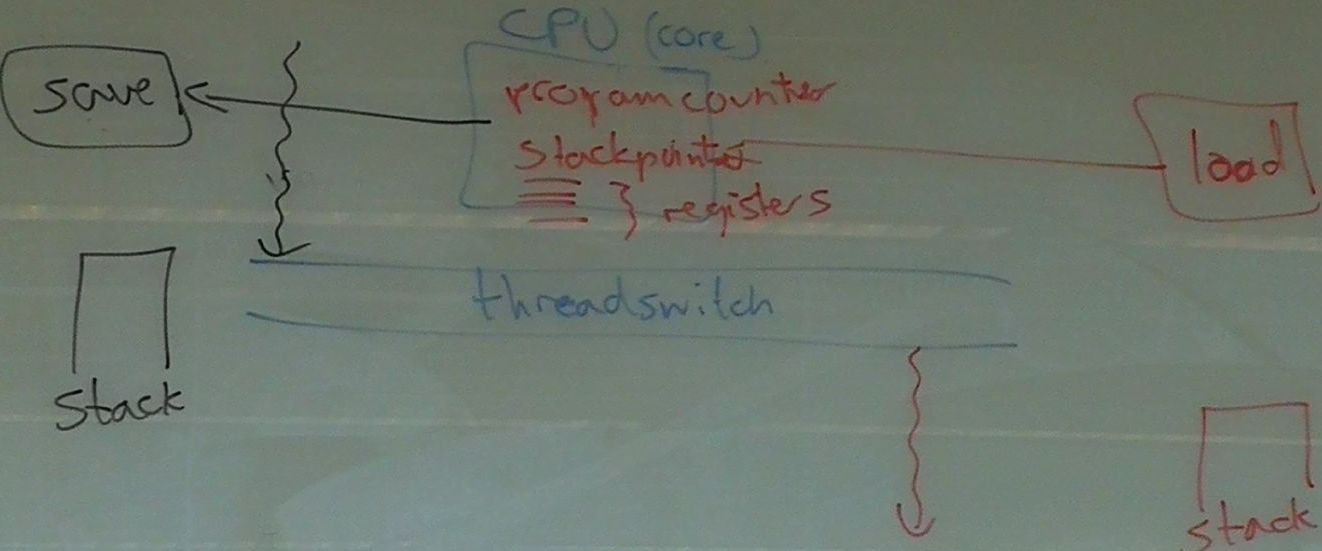 CPU (core)
save
programcounter
stackpointer
load
} registers
threadswitch
Stack
stack